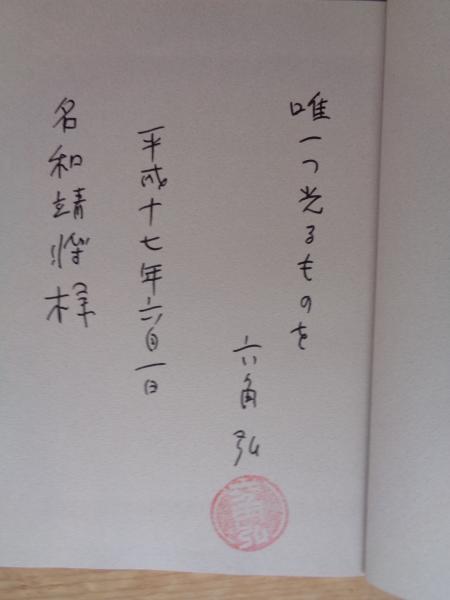 唯一つ光るものを
六角弘
平成十七年六月一日
名和靖將様
六角弘